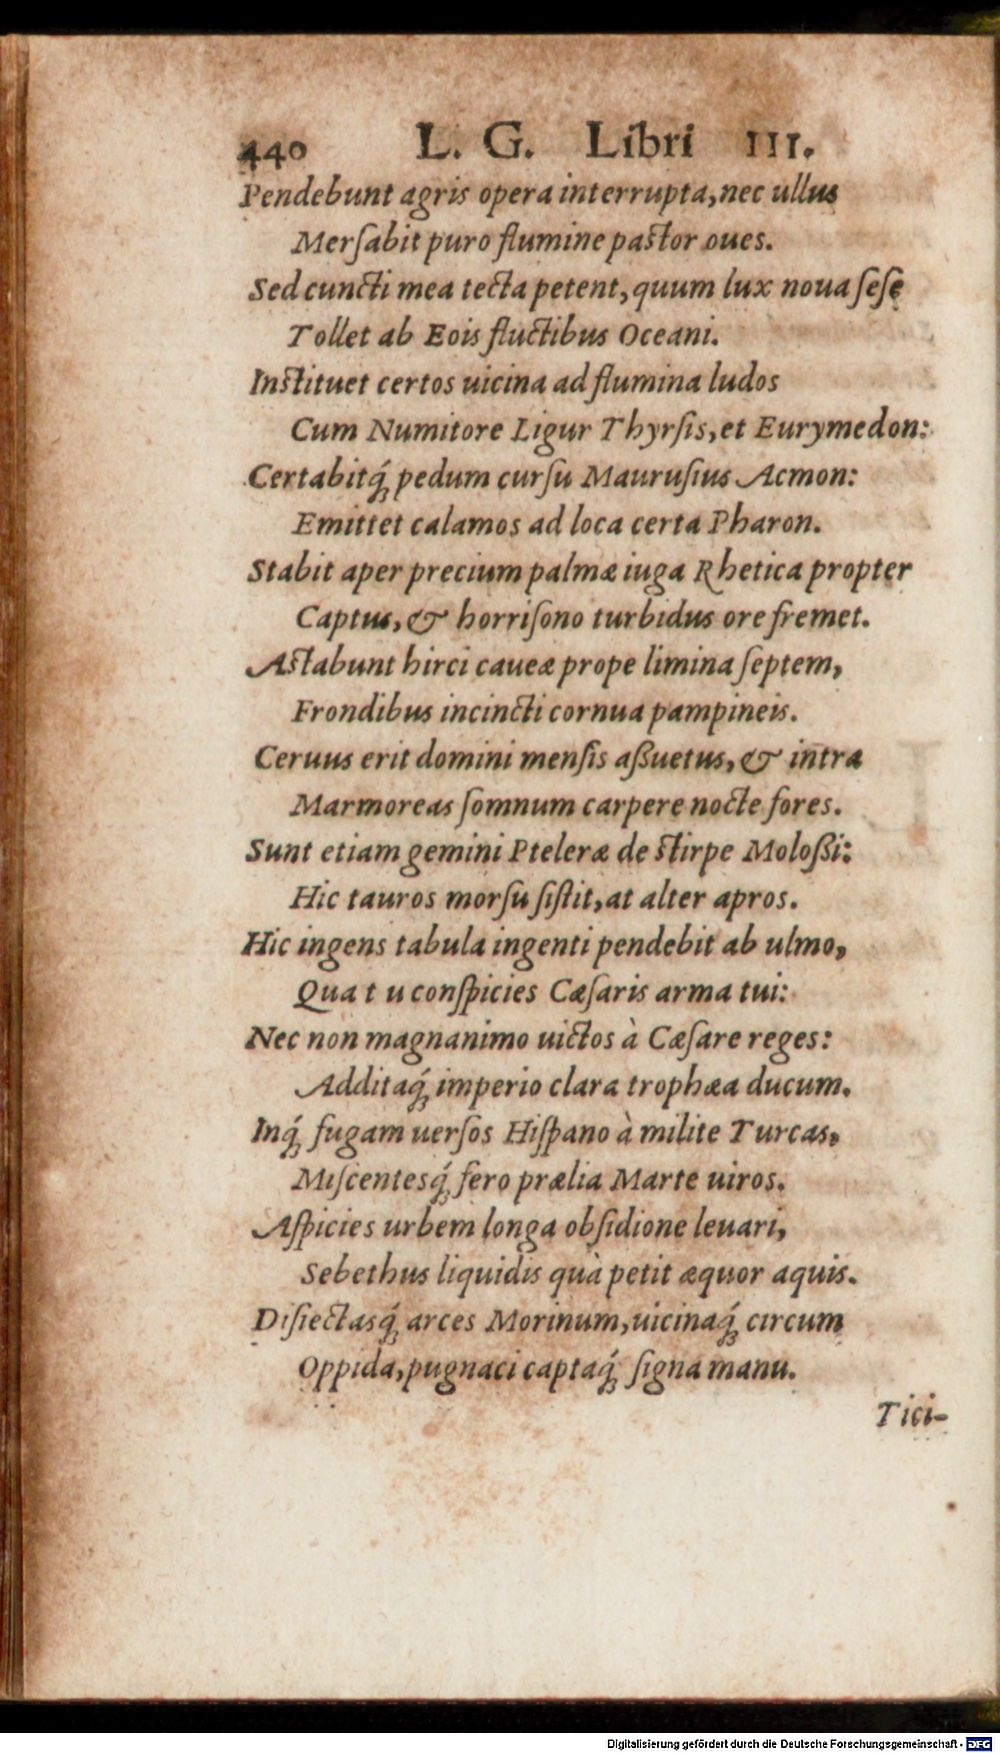 440 L. G. Libri III.
Pendebunt agris opera interrupta, nec ullus
Merſabit puro flumine paſtor oues.
Sed cuncti mea tecta petent, quum lux noua ſeſe
Tollet ab Eois fluctibus Oceani.
Inſtituet certos uicina ad flumina ludos
Cum Numitore Ligur Thyrſis, et Eurymedon:
Certabitq́ꝫ pedum curſu Mauruſius Acmon:
Emittet calamos ad loca certa Pharon.
Stabit aper precium palmæ iuga Rhetica propter
Captus, & horriſono turbidus ore fremet.
Aſtabunt hirci caueæ prope limina ſeptem,
Frondibus incincti cornua pampineis.
Ceruus erit domini menſis aßuetus, & intra
Marmoreas ſomnum carpere nocte fores.
Sunt etiam gemini Pteleræ de ſtirpe Moloßi:
Hic tauros morſu ſiſtit, at alter apros.
Hic ingens tabula ingenti pendebit ab ulmo,
Qua t u conſpicies Cæſaris arma tui:
Nec non magnanimo uictos à Cæſare reges:
Additaq́ꝫ imperio clara trophæa ducum.
Inq́ꝫ fugam uerſos Hiſpano à milite Turcas,
Miſcentesq́ꝫ fero prælia Marte uiros.
Aſpicies urbem longa obſidione leuari,
Sebethus liquidis quà petit æquor aquis.
Diſiectasq́ꝫ arces Morinum, uicinaq́ꝫ circum
Oppida, pugnaci captaq́ꝫ ſigna manu.
Tici-
Digitalisierung gefördert durch die Deutsche Forschungsgemeinschaft - DFG